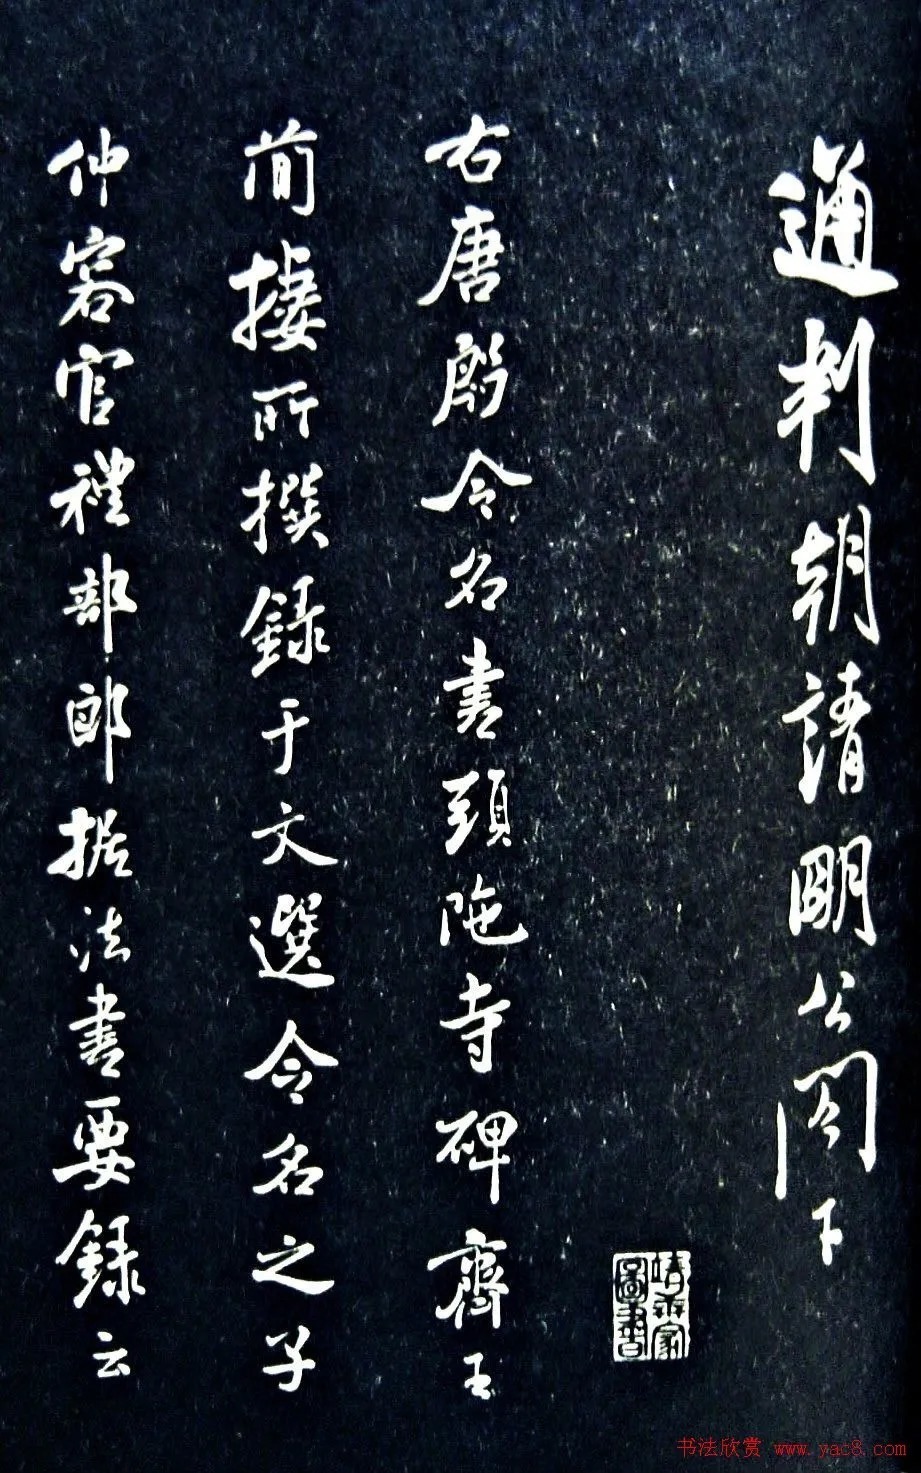 通判朝請明公閣下
圖書
右唐殷令名書頭陁寺碑齊王
簡捿所撰録于文選令名之子
仲容官禮部郎据法書要録云
书法欣赏 www.yac8.com